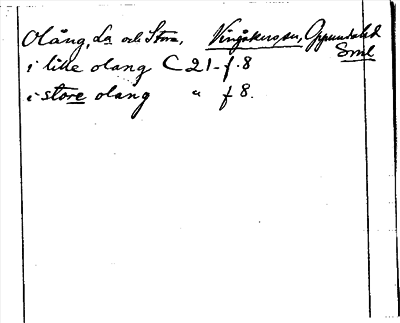 Olång, La och Stora, Vingåkers sn, Oppunda hd
Sml
i litle olang C 21 f. 8
i store olang " f 8.